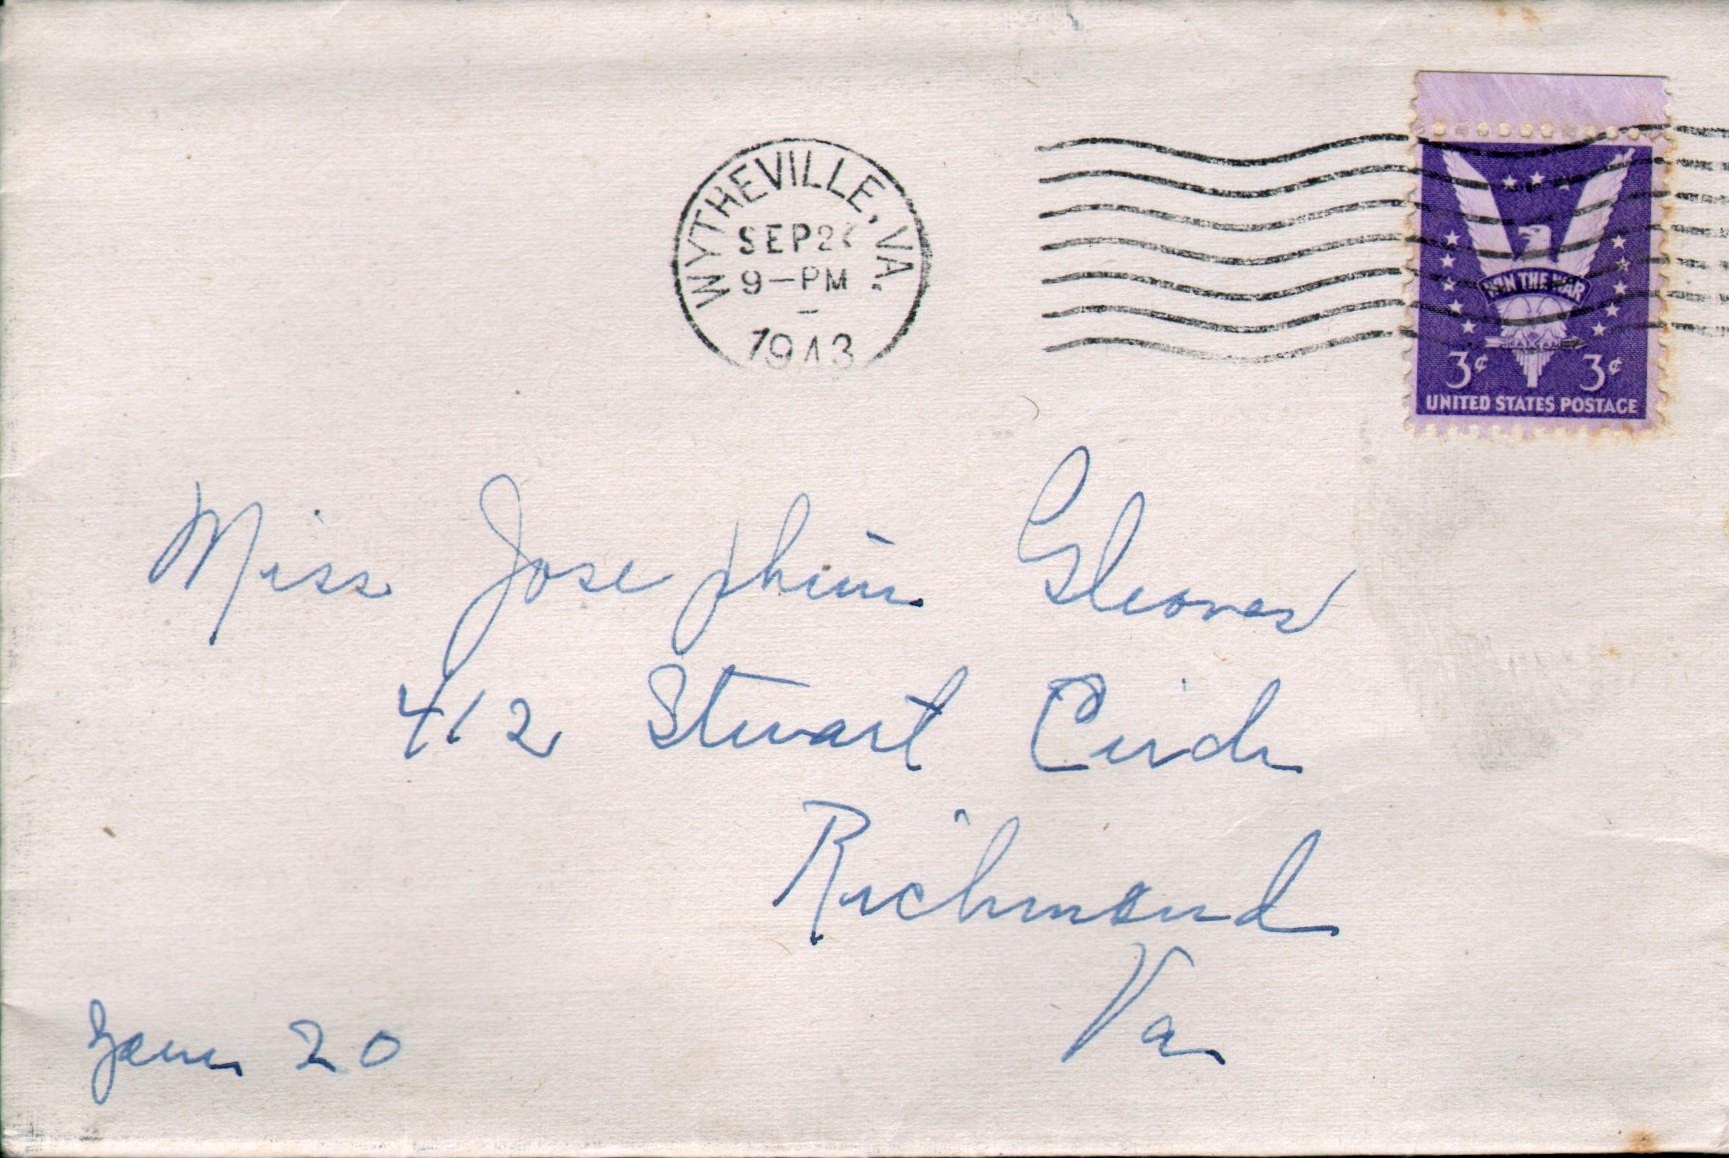 WYTHEVILLE, VA.
SEP 2
9-PM
1943
WIN THE WAR
3¢ 3¢
UNITED STATES POSTAGE
Miss Josephine Gleaves
412 Stuart Circle
Richmond
Va
Zone 20